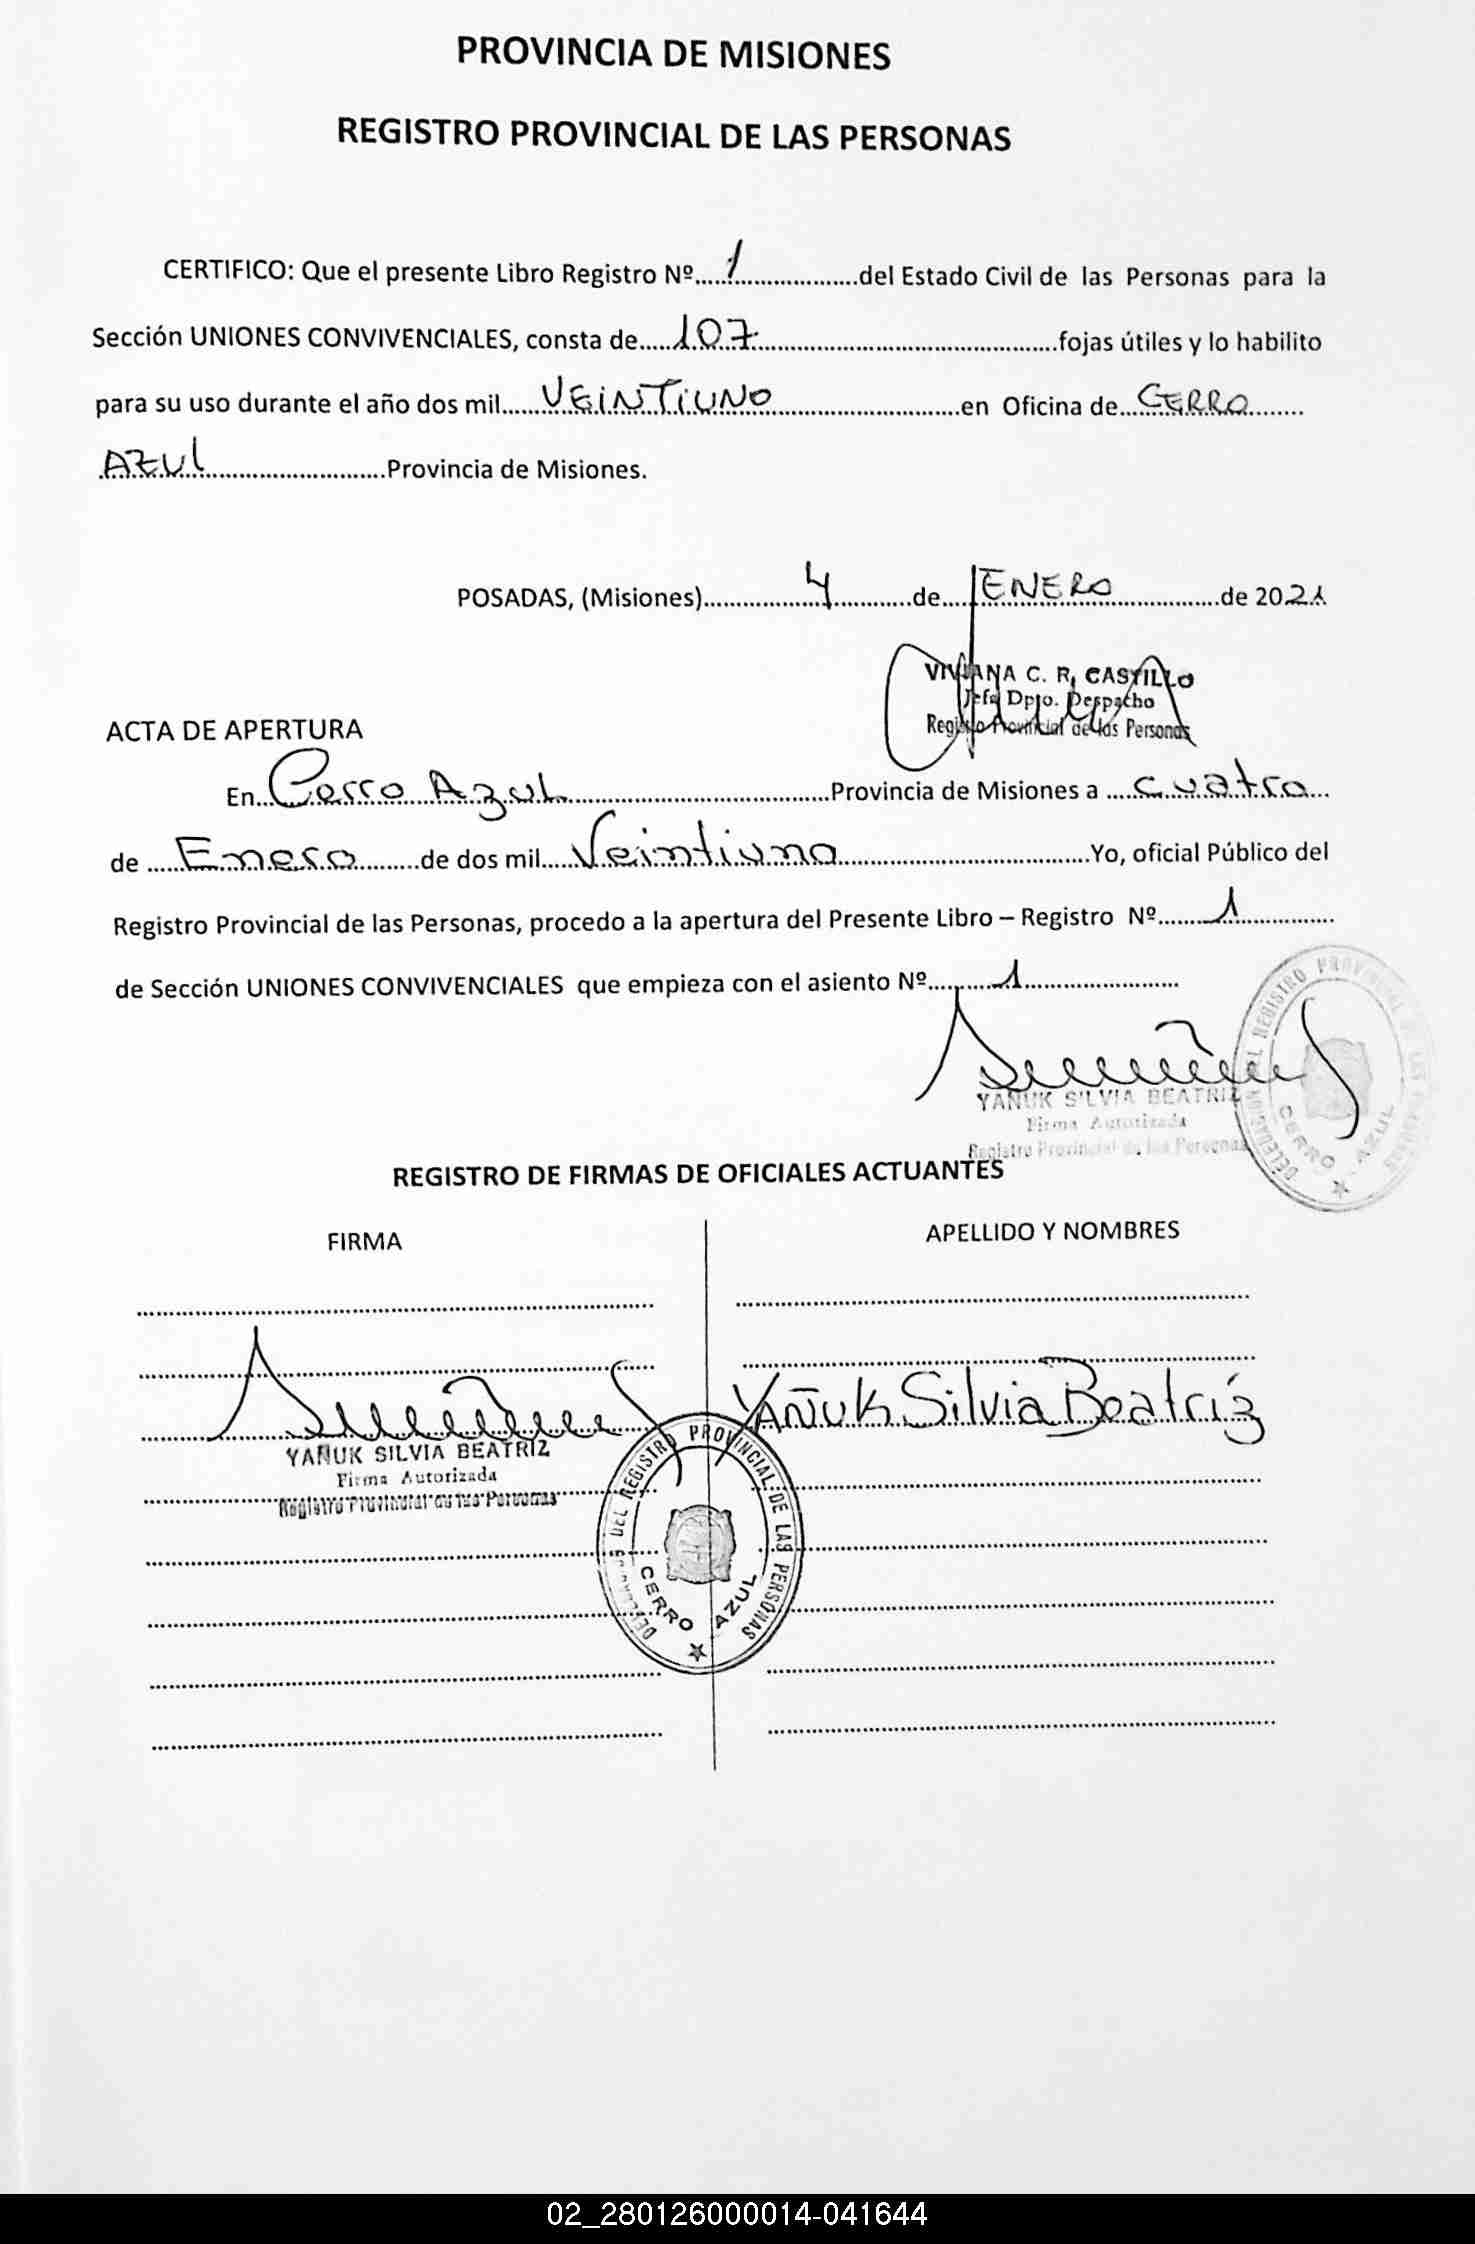 PROVINCIA DE MISIONES
REGISTRO PROVINCIAL DE LAS PERSONAS
CERTIFICO: Que el presente Libro Registro Nº.....1.....del Estado Civil de las Personas para la
Sección UNIONES CONVIVENCIALES, consta de.....107.....fojas útiles y lo habilito
para su uso durante el año dos mil.....VEINTIUNO.....en Oficina de...CERRO.....
AZUL.....Provincia de Misiones.
POSADAS, (Misiones).....4.....de.....ENERO.....de 2021
VIVIANA C. R. CASTILLO
Jefa Dpto. Despacho
Registro Provincial de las Personas
ACTA DE APERTURA
En...Cerro Azul.....Provincia de Misiones a .....cuatro...
de .....Enero.....de dos mil.....Veintiuno.....Yo, oficial Público del
Registro Provincial de las Personas, procedo a la apertura del Presente Libro – Registro Nº.....1.....
de Sección UNIONES CONVIVENCIALES que empieza con el asiento Nº.....1.....
YAÑUK SILVIA BEATRIZ
Firma Autorizada
Registro Provincial de las Personas
DELEGACION DEL REGISTRO PROVINCIAL DE LAS PERSONAS
CERRO AZUL
REGISTRO DE FIRMAS DE OFICIALES ACTUANTES
FIRMA
APELLIDO Y NOMBRES
YAÑUK Silvia Beatríz
YAÑUK SILVIA BEATRIZ
Firma Autorizada
Registro Provincial de las Personas
DELEGACION DEL REGISTRO PROVINCIAL DE LAS PERSONAS
CERRO AZUL
02_280126000014-041644